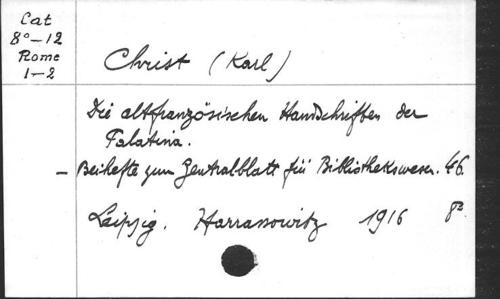 Cat
8°-12
Rome
1-2
Christ (Karl)
Die altfranzösischen Handschriften der
Palatina.
- Beihefte zum Zentralblatt für Bibliothekswesen. 46.
Leipzig. Harrassowitz 1916 8°